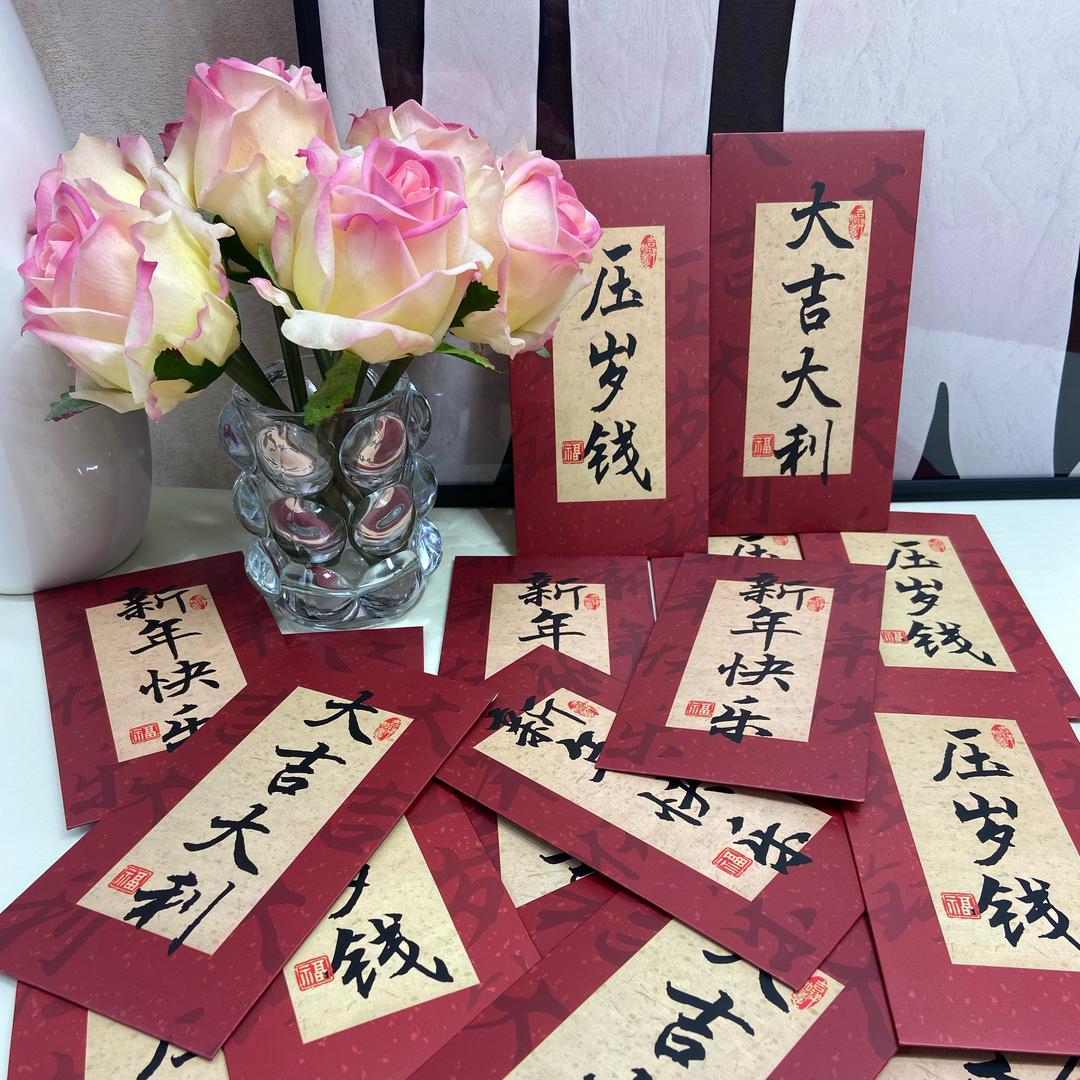 压岁钱
福
大吉大利
福
新年快乐
福
新年
新年快乐
福
压
压岁钱
福
大吉大利
福
新年快乐
福
压岁钱
福
钱
福
大吉